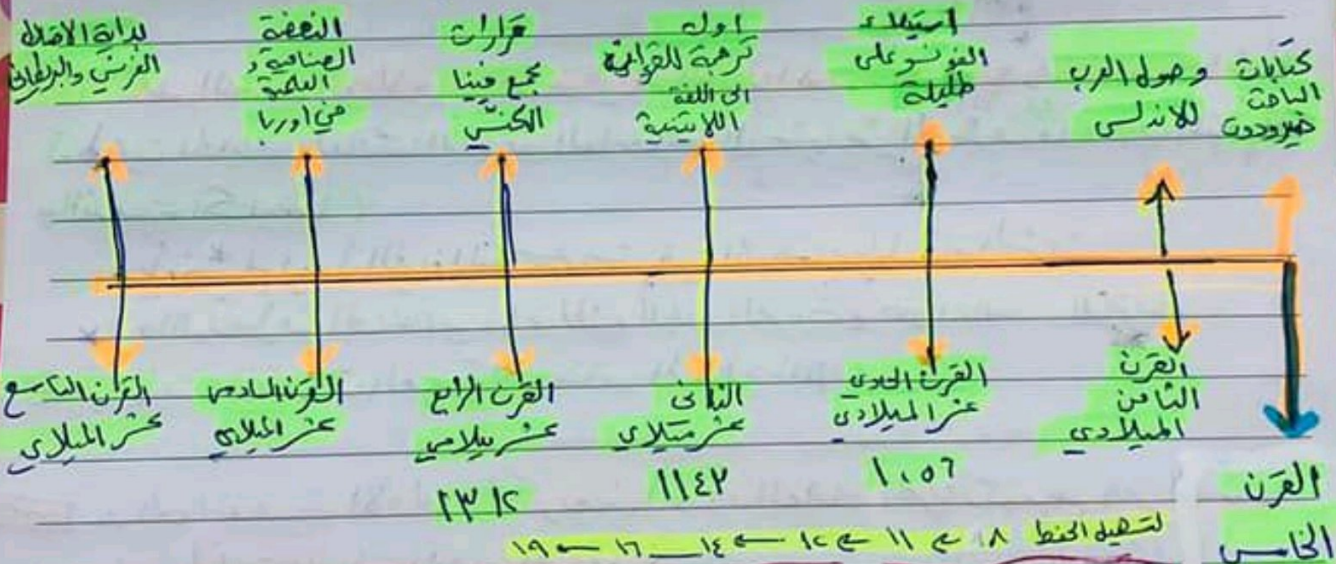 كتابات
الباحث
هيرودوت
وصول العرب
للاندلس
استيلاء
الفونسو على
طليطلة
اول
ترجمة للقرآن
الى اللغة
اللاتينية
قرارات
مجمع فينا
الكنسي
النهضة
الصناعية و
العلمية
في اوربا
بداية الاحتلال
الفرنسي والبريطاني
القرن
الخامس
القرن
الثامن
الميلادي
القرن الحادي
عشر الميلادي
١٠٥٦
الثاني
عشر ميلادي
١١٤٢
القرن الرابع
عشر ميلادي
١٣١٢
القرن السادس
عشر الميلادي
القرن التاسع
عشر الميلادي
لتسهيل الحفظ ٨ ← ١١ ← ١٢ ← ١٤ ← ١٦ ← ١٩